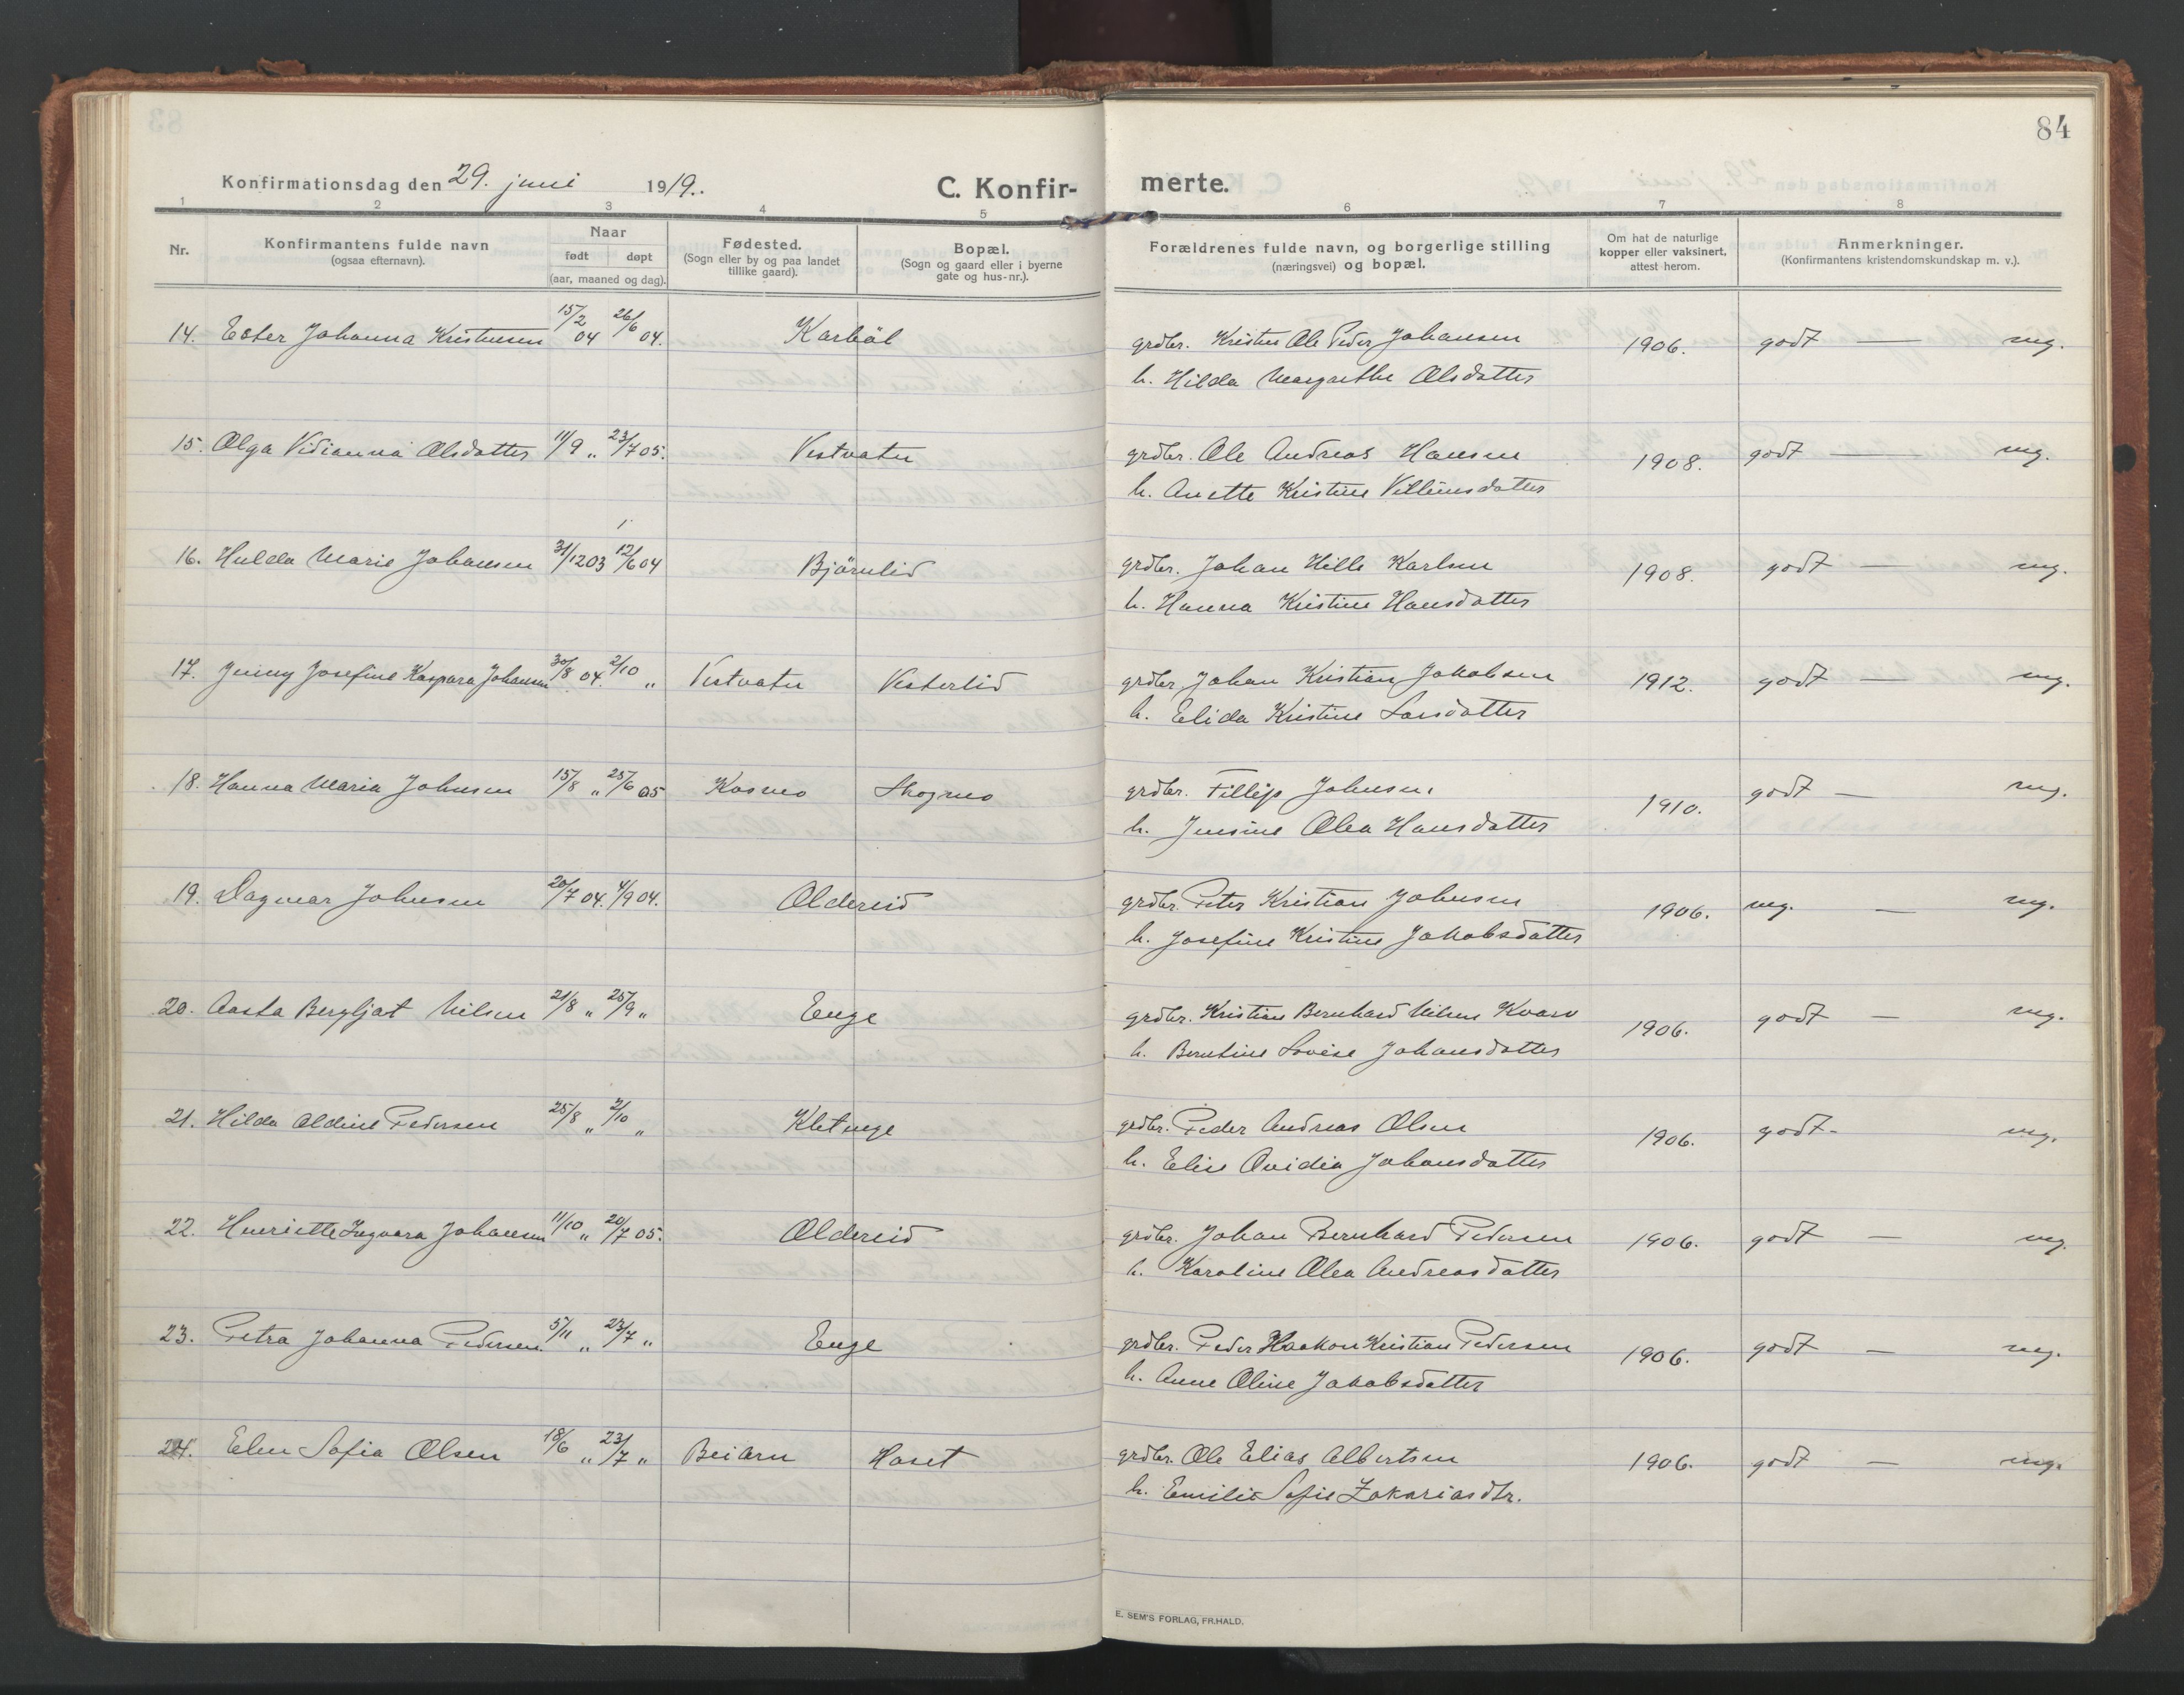 84
Konfirmationsdag den 29. juni 1919.
C. Konfirmerte.
1 2 3 4 5 6 7 8
Nr.
Konfirmantens fulde navn
(ogsaa efternavn).
Naar
født døpt
(aar, maaned og dag).
Fødested.
(Sogn eller by og paa landet
tillike gaard).
Bopæl.
(Sogn og gaard eller i byerne
gate og hus-nr.).
Forældrenes fulde navn, og borgerlige stilling
(næringsvei) og bopæl.
Om hat de naturlige
kopper eller vaksinert,
attest herom.
Anmerkninger.
(Konfirmantens kristendomskundskap m. v.).
14. Ester Johanna Kristensen 15/2 04 26/6 04. Karbøl grdbr. Kristen Ole Peder Johansen 1906. godt — mg.
h. Hilda Margrethe Olsdatter
15. Olga Vidianna Olsdatter 11/9 „ 23/7 05. Vestvatn grdbr. Ole Andreas Hansen 1908. godt — mg.
h. Anette Kristine Villumsdatter
16. Hulda Marie Johansen 31/12 03 12/6 04 Björnlid grdbr. Johan Hille Karlsen 1908. godt — mg.
h. Hanna Kristine Hansdatter
17. Jenny Josefine Kaspara Johansen 30/8 04. 2/10 „ Vestvatn Vesterlid grdbr Johan Kristian Jakobsen 1912. godt — mg.
h. Elida Kristine Larsdatter
18. Hanna Maria Johnsen 15/8 „ 25/6 05 Kosmo Skogmo grdbr. Fillip Johnsen. 1910. godt — mg.
h. Jensine Olea Hansdatter
19. Dagmar Johnsen 20/7 04. 4/9 04. Oldereid grdbr. Peter Kristian Johnsen 1906. mg. — mg.
h. Josefine Kristine Jakobsdatter
20. Aasta Bergljot Nilsen 21/8 „ 25/9 „ Enge grdbr. Kristian Bernhard Nilsen Kvarv 1906. godt — mg.
h. Berntine Lovise Johansdatter
21. Hilda Aldine Pedersen 25/8 „ 2/10 „ Kletenge grdbr. Peder Andreas Olsen 1906. godt- mg.
h. Elise Ovidia Johansdatter
22. Henriette Ingvara Johansen 11/10 „ 20/7 05. Oldereid grdbr. Johan Bernhard Pedersen 1906. godt — mg.
h. Karoline Olea Andreasdatter
23. Petra Johanna Pedersen 5/11 „ 23/7 „ Enge grdbr. Peder Haakon Kristian Pedersen 1906. godt — mg.
h. Anne Oline Jakobsdatter
24. Elen Sofia Olsen 18/6 „ 23/7 „ Beiarn Haset grdbr. Ole Elias Albertsen 1906. godt — mg.
h. Emilie Sofie Zakariasdtr.
E. SEM'S FORLAG, FR.HALD.